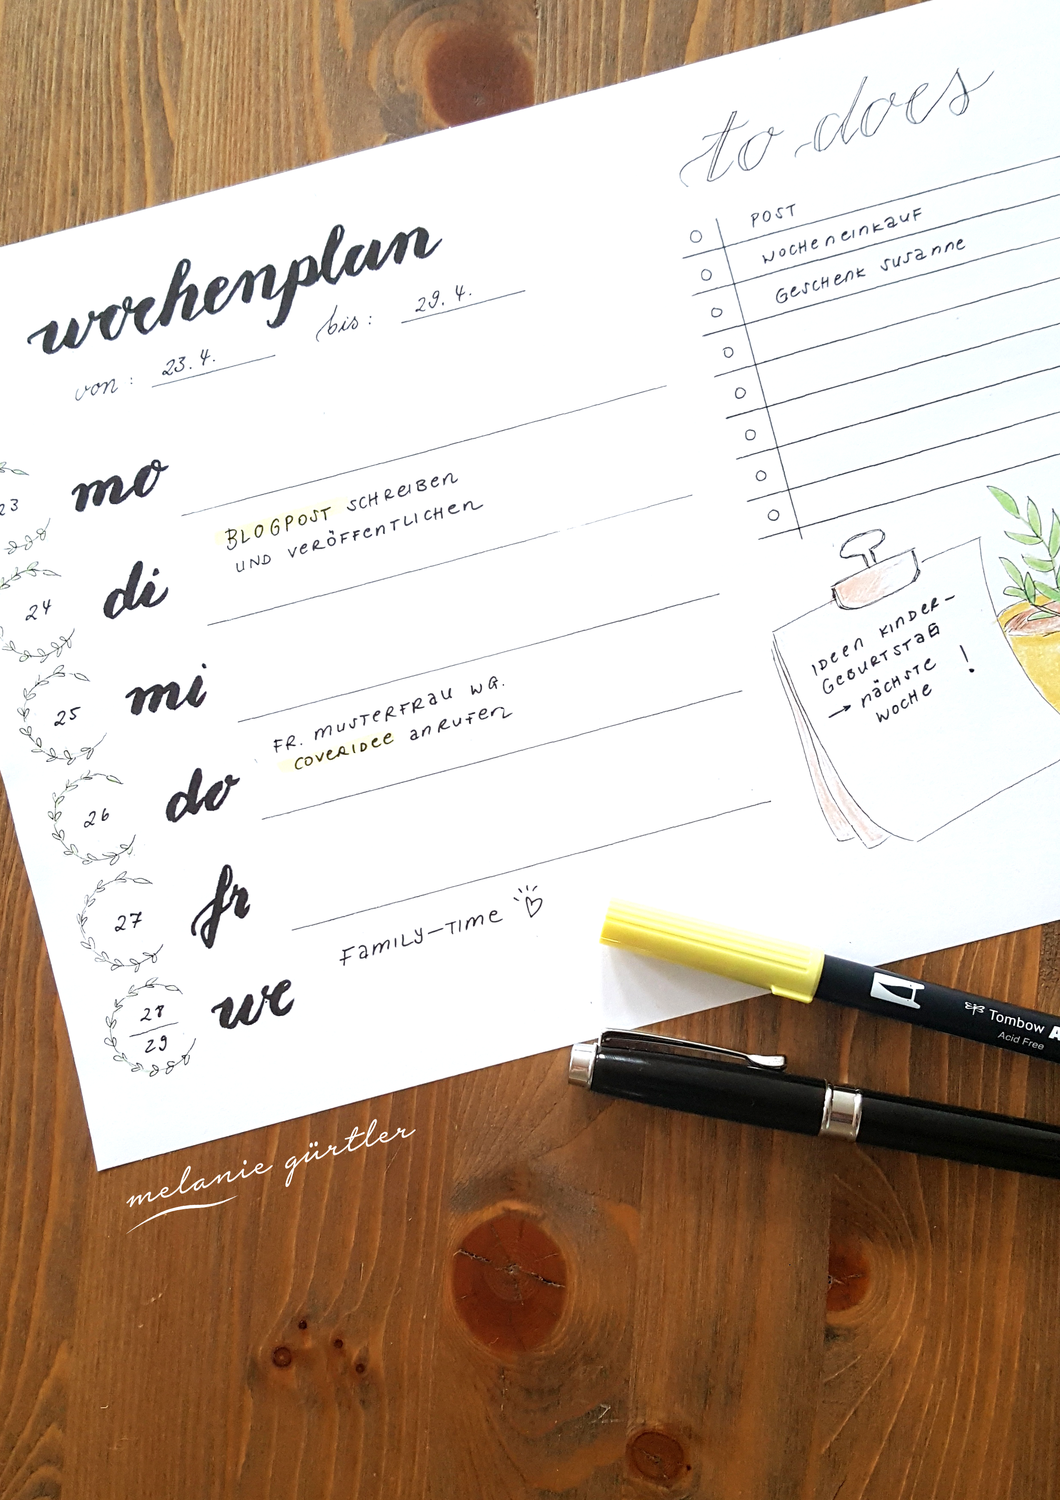 wochenplan
von: 23.4. bis: 29.4.
23 mo
24 di
BLOGPOST SCHREIBEN
UND VERÖFFENTLICHEN
25 mi
26 do
FR. MUSTERFRAU WG.
COVERIDEE ANRUFEN
27 fr
28
29
we
FAMILY-TIME
to does
POST
WOCHENEINKAUF
GESCHENK SUSANNE
IDEEN KINDER-
GEBURTSTAG
→ NÄCHSTE
WOCHE !
Tombow
Acid Free
melanie gürtler